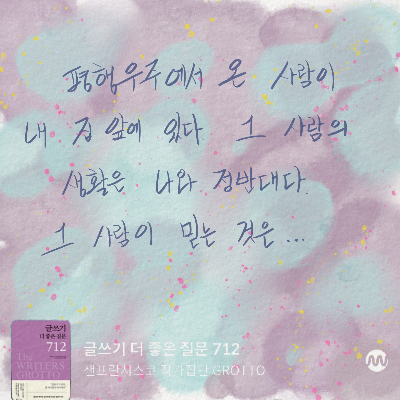 평행우주에서 온 사람이
내 집 앞에 있다. 그 사람의
생활은 나와 정반대다.
그 사람이 믿는 것은...
글쓰기 더 좋은 질문 712
샌프란시스코 작가집단 GROTTO
글쓰기
더 좋은 질문
712
The
WRITERS'
GROTTO